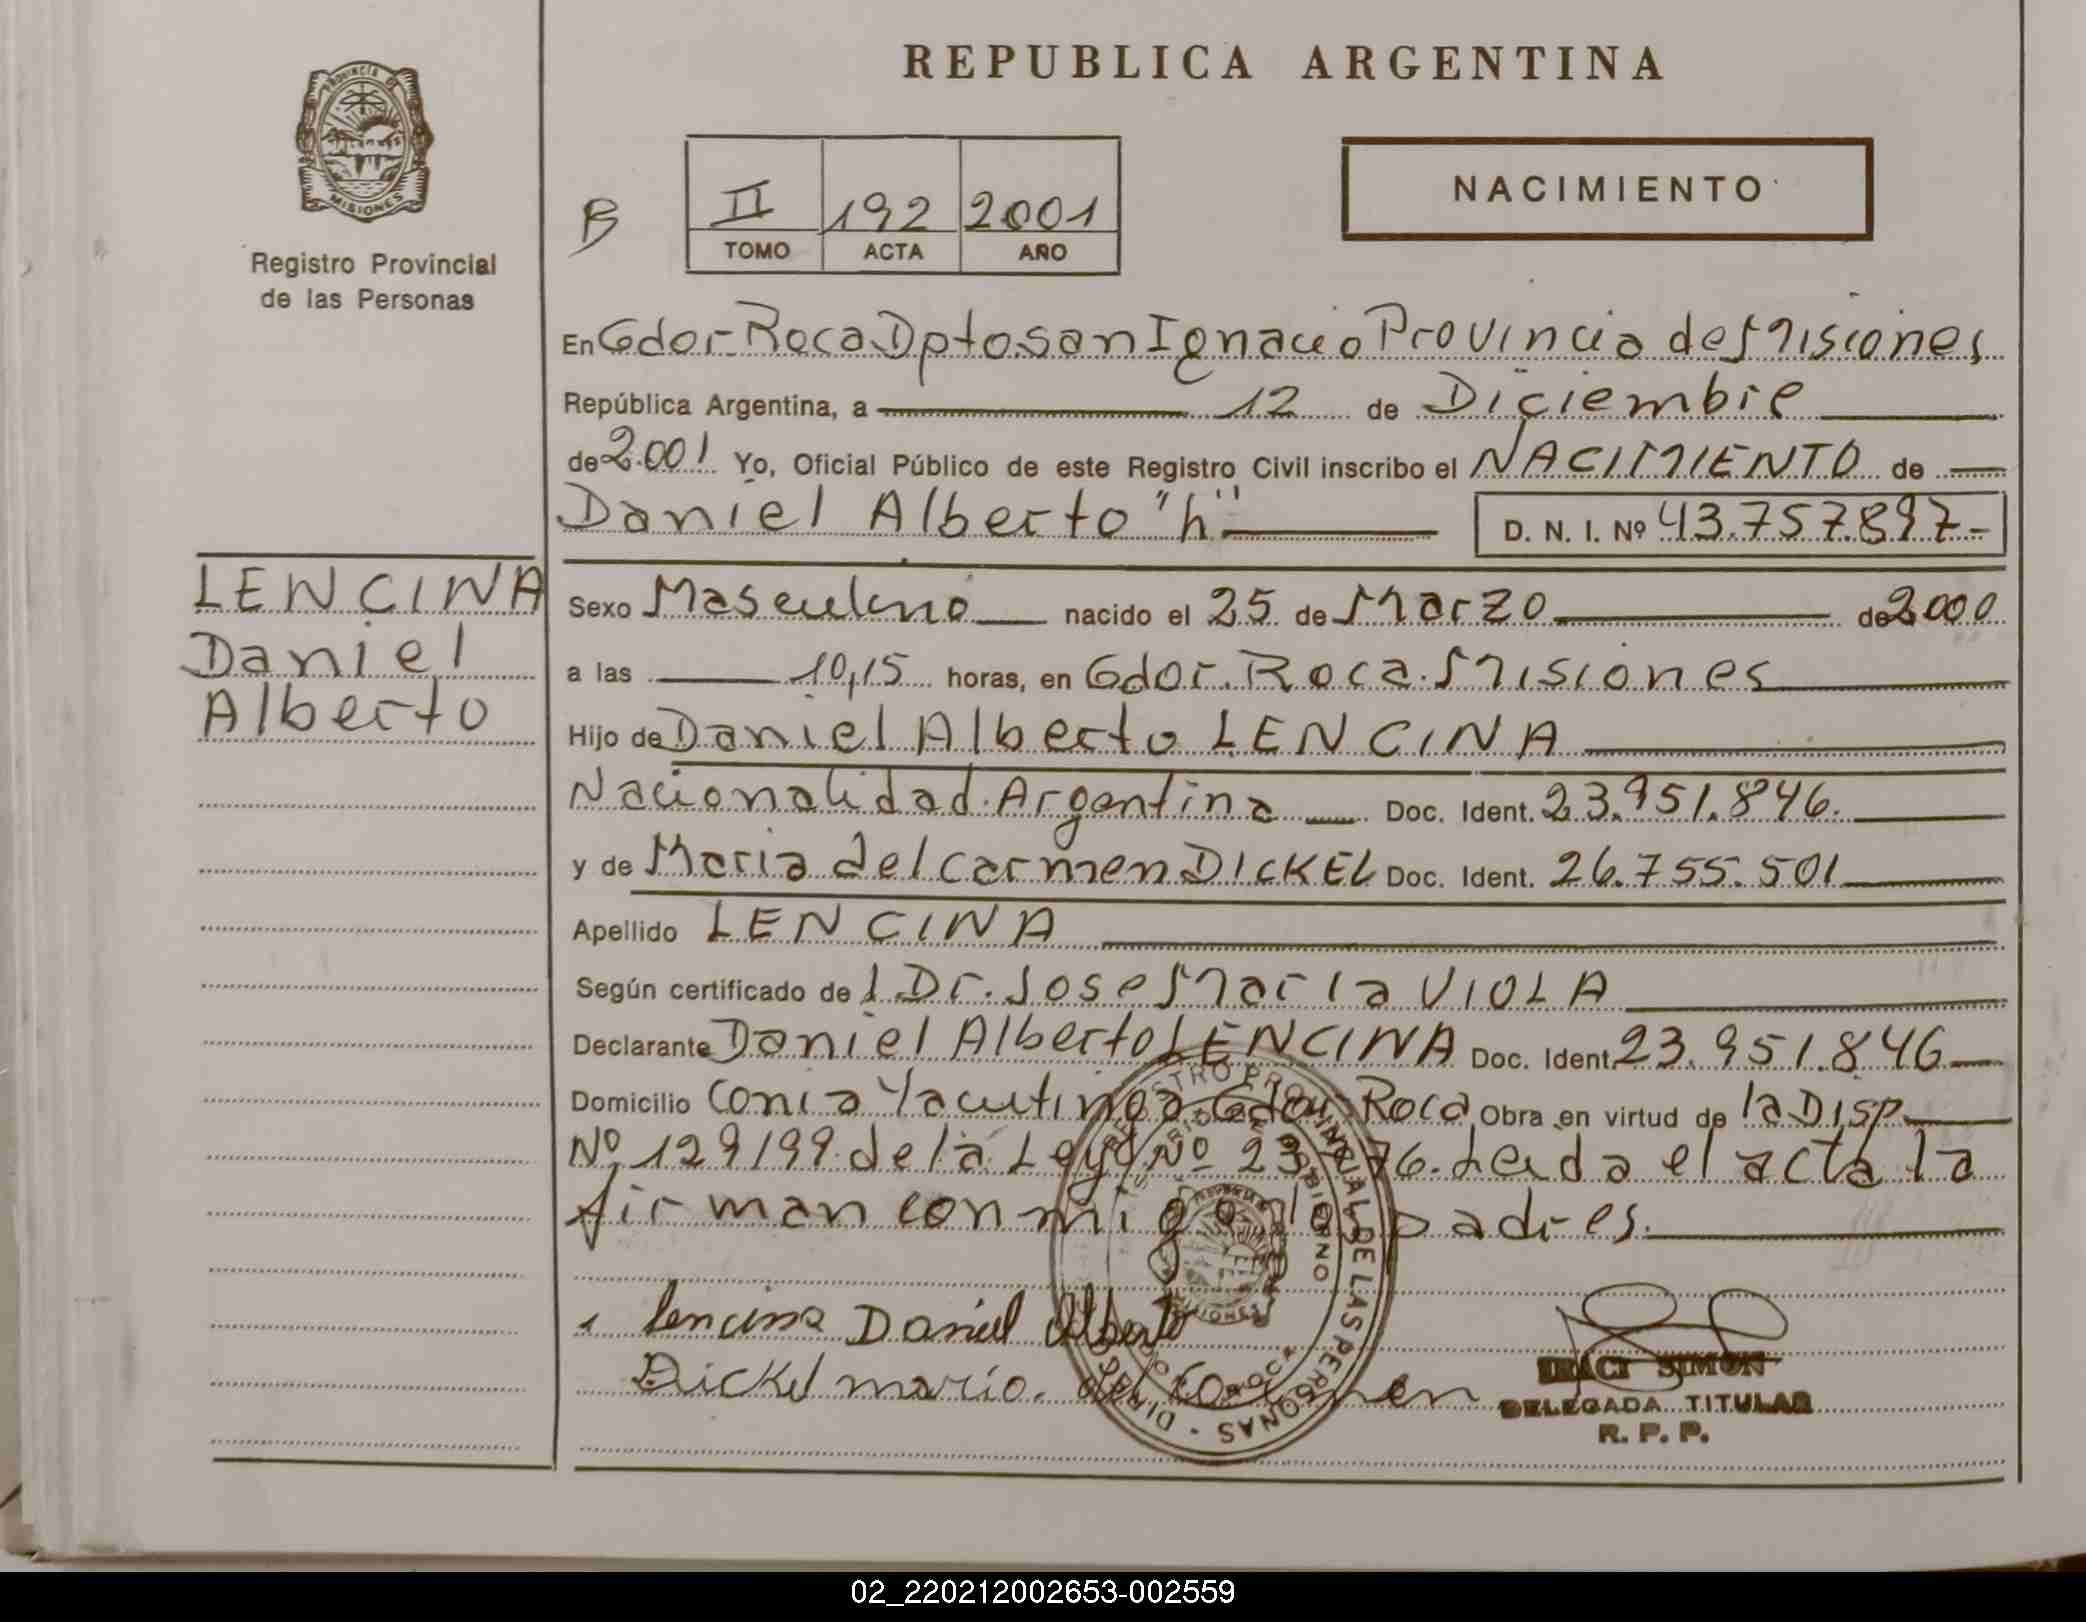 REPUBLICA ARGENTINA
PROVINCIA DE
MISIONES
Registro Provincial
de las Personas
B
II 192 2001
TOMO ACTA AÑO
NACIMIENTO
En Gdor-Roca Dpto san Ignacio Provincia de Misiones
República Argentina, a 12 de Diciembre
de 2.001 Yo, Oficial Público de este Registro Civil inscribo el NACIMIENTO de
Daniel Alberto "h" D. N. I. Nº 43.757.897-
LENCINA
Daniel
Alberto
Sexo Masculino nacido el 25 de Marzo de 2000
a las 10,15 horas, en Gdor. Roca. Misiones
Hijo de Daniel Alberto LENCINA
Nacionalidad Argentina Doc. Ident. 23.951.846.
y de Maria del Carmen DICKEL Doc. Ident. 26.755.501
Apellido LENCINA
Según certificado de l Dr. Jose Maria VIOLA
Declarante Daniel Alberto LENCINA Doc. Ident. 23.951.846
Domicilio Conia Yacutinga Gdor Roca Obra en virtud de la Disp
Nº 129/99 de la Ley Nº 23 76. Leida el acta la
firman conmigo los padres.
Lencina Daniel Alberto
Dickel maria del Carmen
REGISTRO PROVINCIAL DE LAS PERSONAS
GOBIERNO
ROCA
MISIONES
IRACI SIMON
DELEGADA TITULAR
R. P. P.
02_220212002653-002559